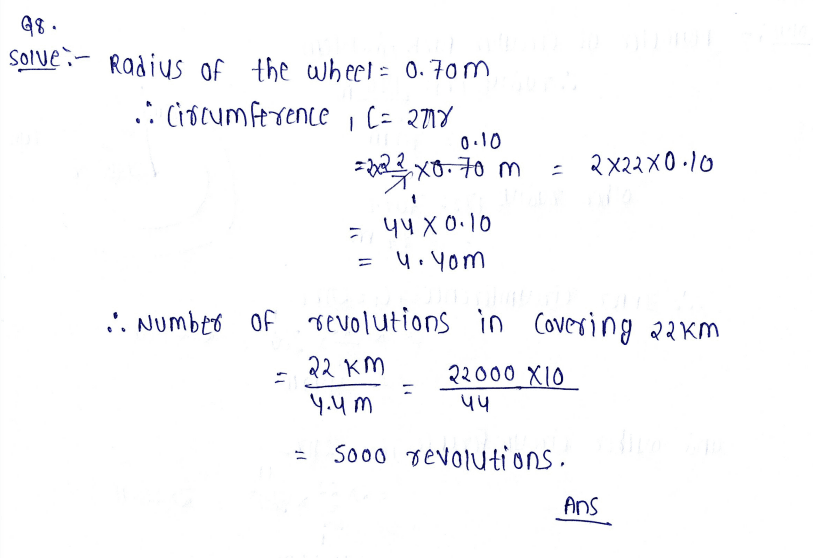 Q8.
Solve:- Radius of the wheel = 0.70m
∴ Circumference, C = 2πr
= 2 × 22/7 × 0.70 m = 2×22×0.10
0.10
1
= 44 × 0.10
= 4.40m
∴ Number of revolutions in covering 22km
= 22 KM / 4.4 m = 22000 × 10 / 44
= 5000 revolutions.
Ans